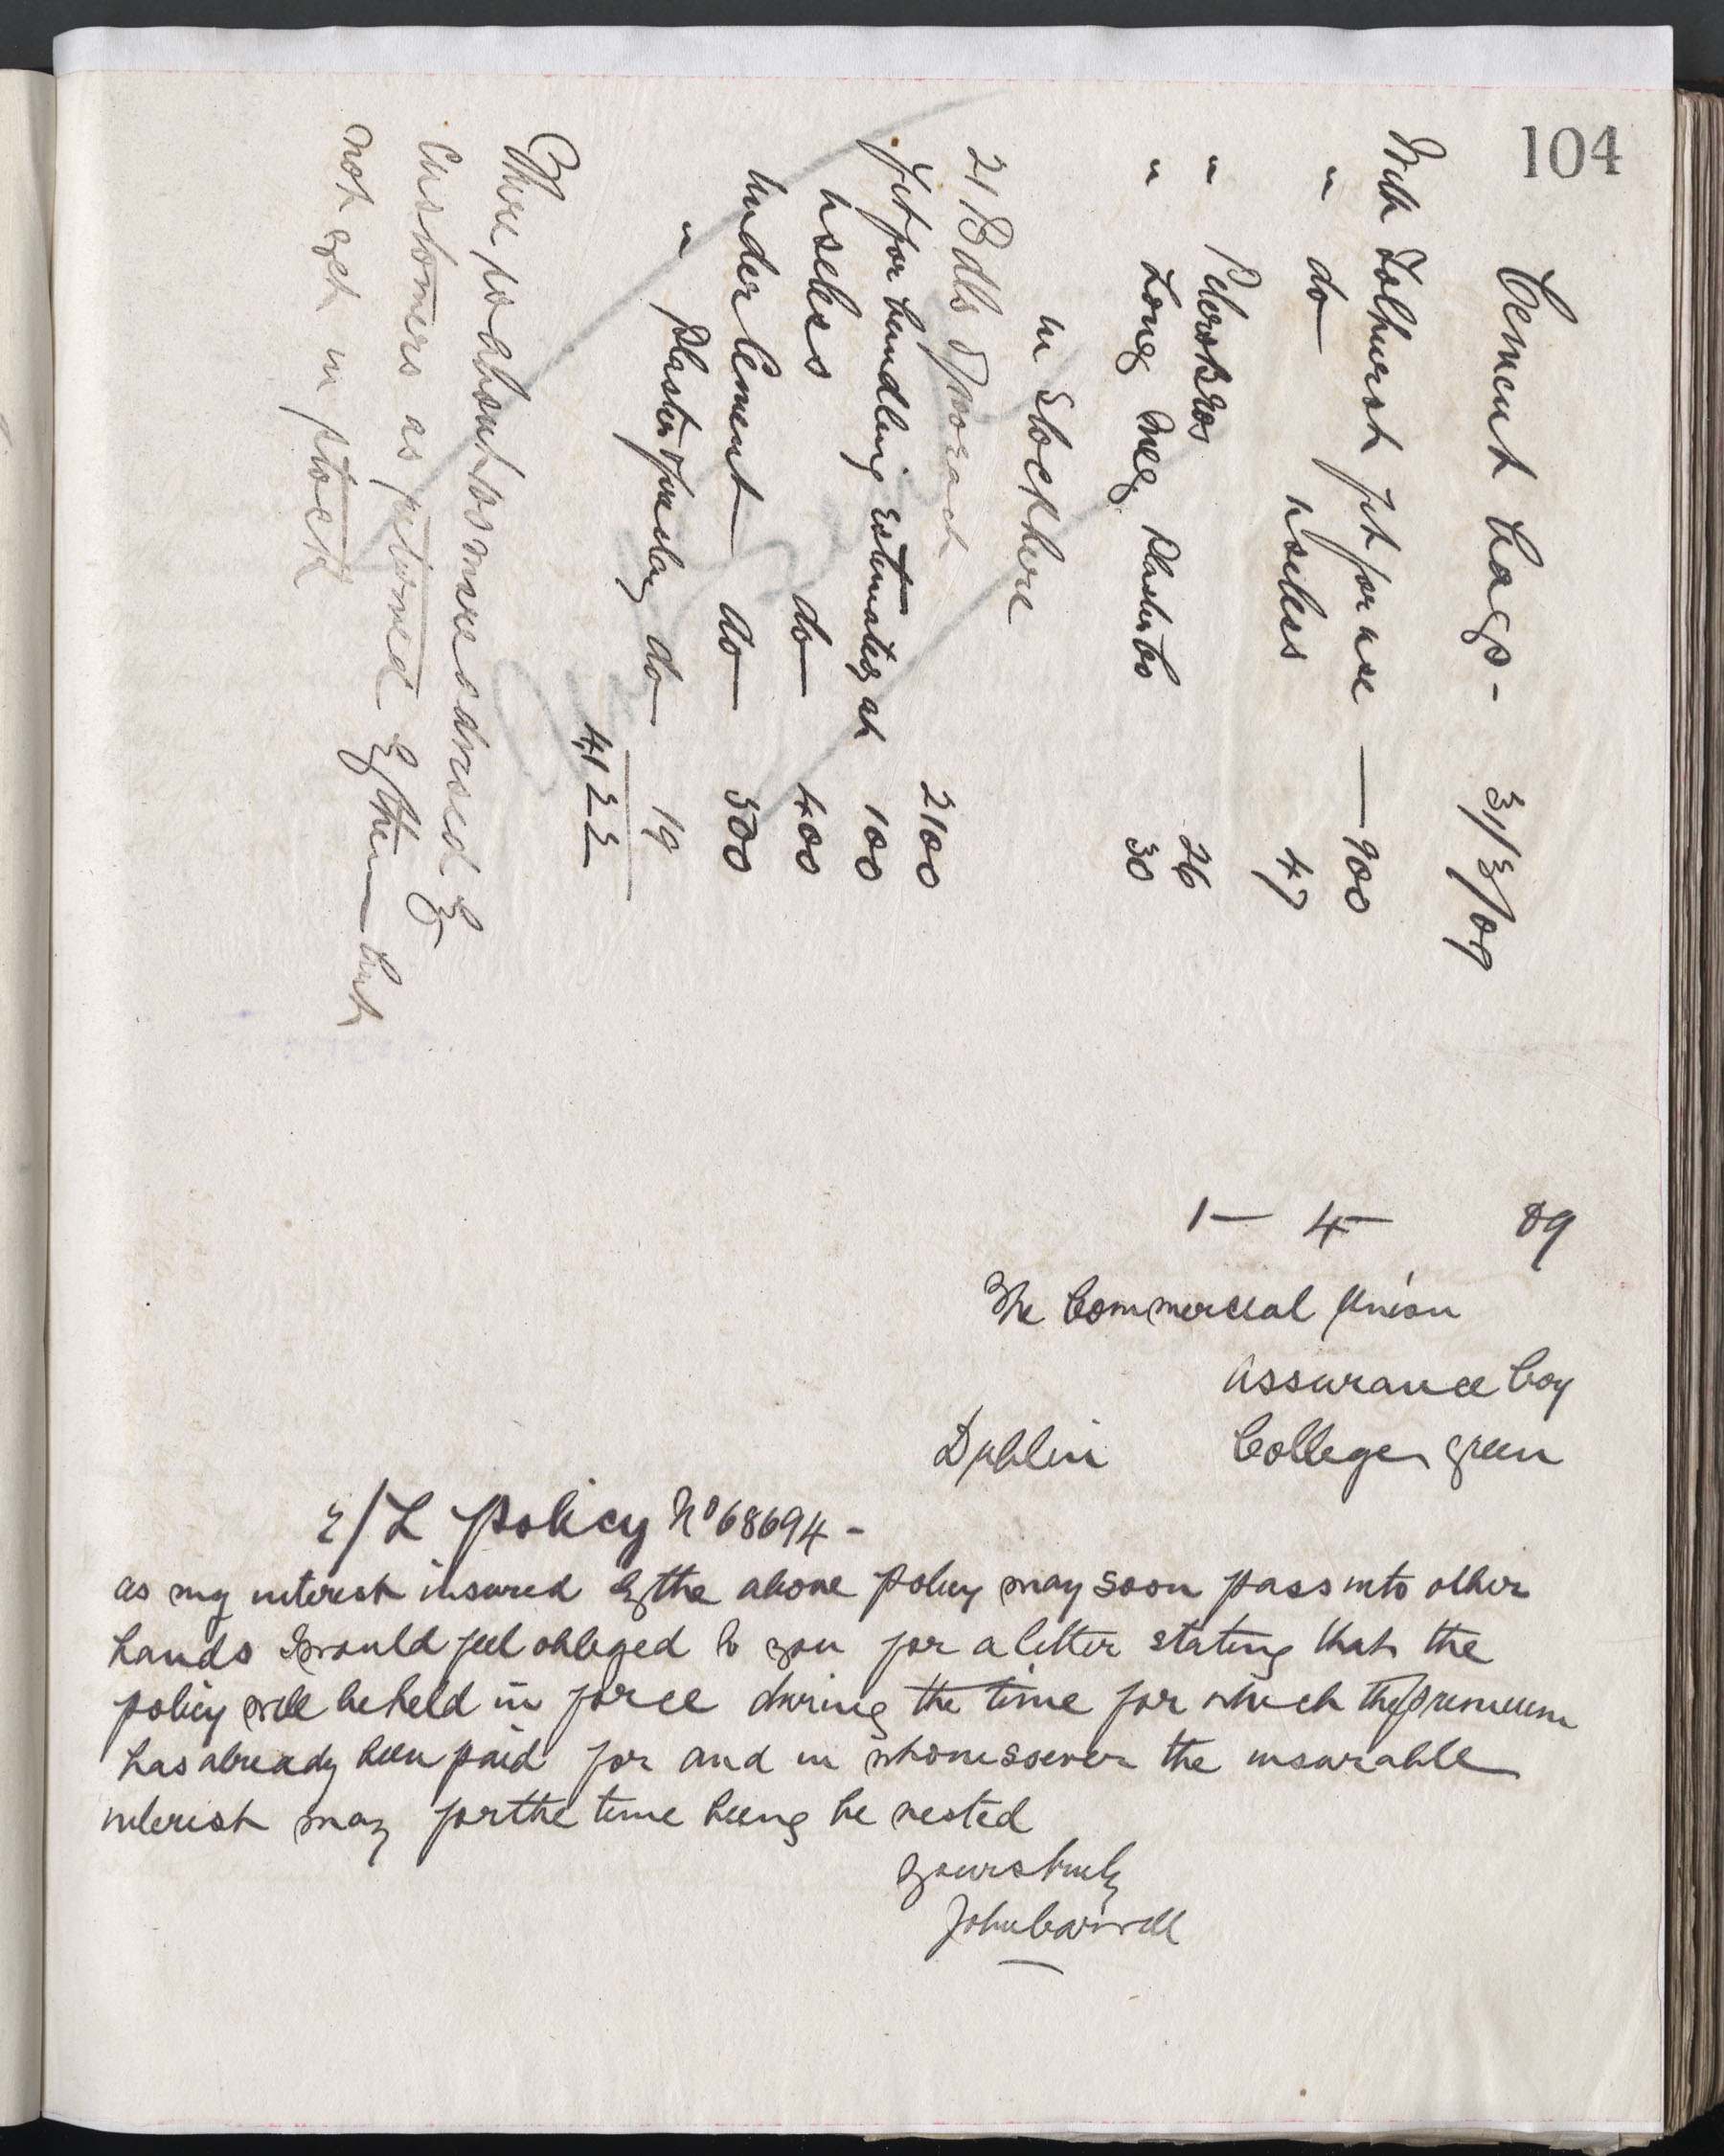 104
Cement bags - 31/3/09
With Tolhurst fit for use — 900
" do useless 47
" Peters Bros 26
" Long Meg Plaster Co 30
in Stock here
21 Bdls of 100 each 2100
fit for bundling estimated at 100
useless do 400
under Cement do 500
" plaster do 19
4122
There about more advised by
Customers as returned by them but
not yet in stock
1 — 4 — 09
The Commercial Union
Assurance Coy
Dublin College green
r/L policy No 68694 -
as my interest insured by the above policy may soon pass into other
hands I would feel obliged to you for a letter stating that the
policy will be held in force during the time for which the premium
has already been paid for and in whomsoever the insurable
interest may for the time being be vested
yours truly
John Carroll